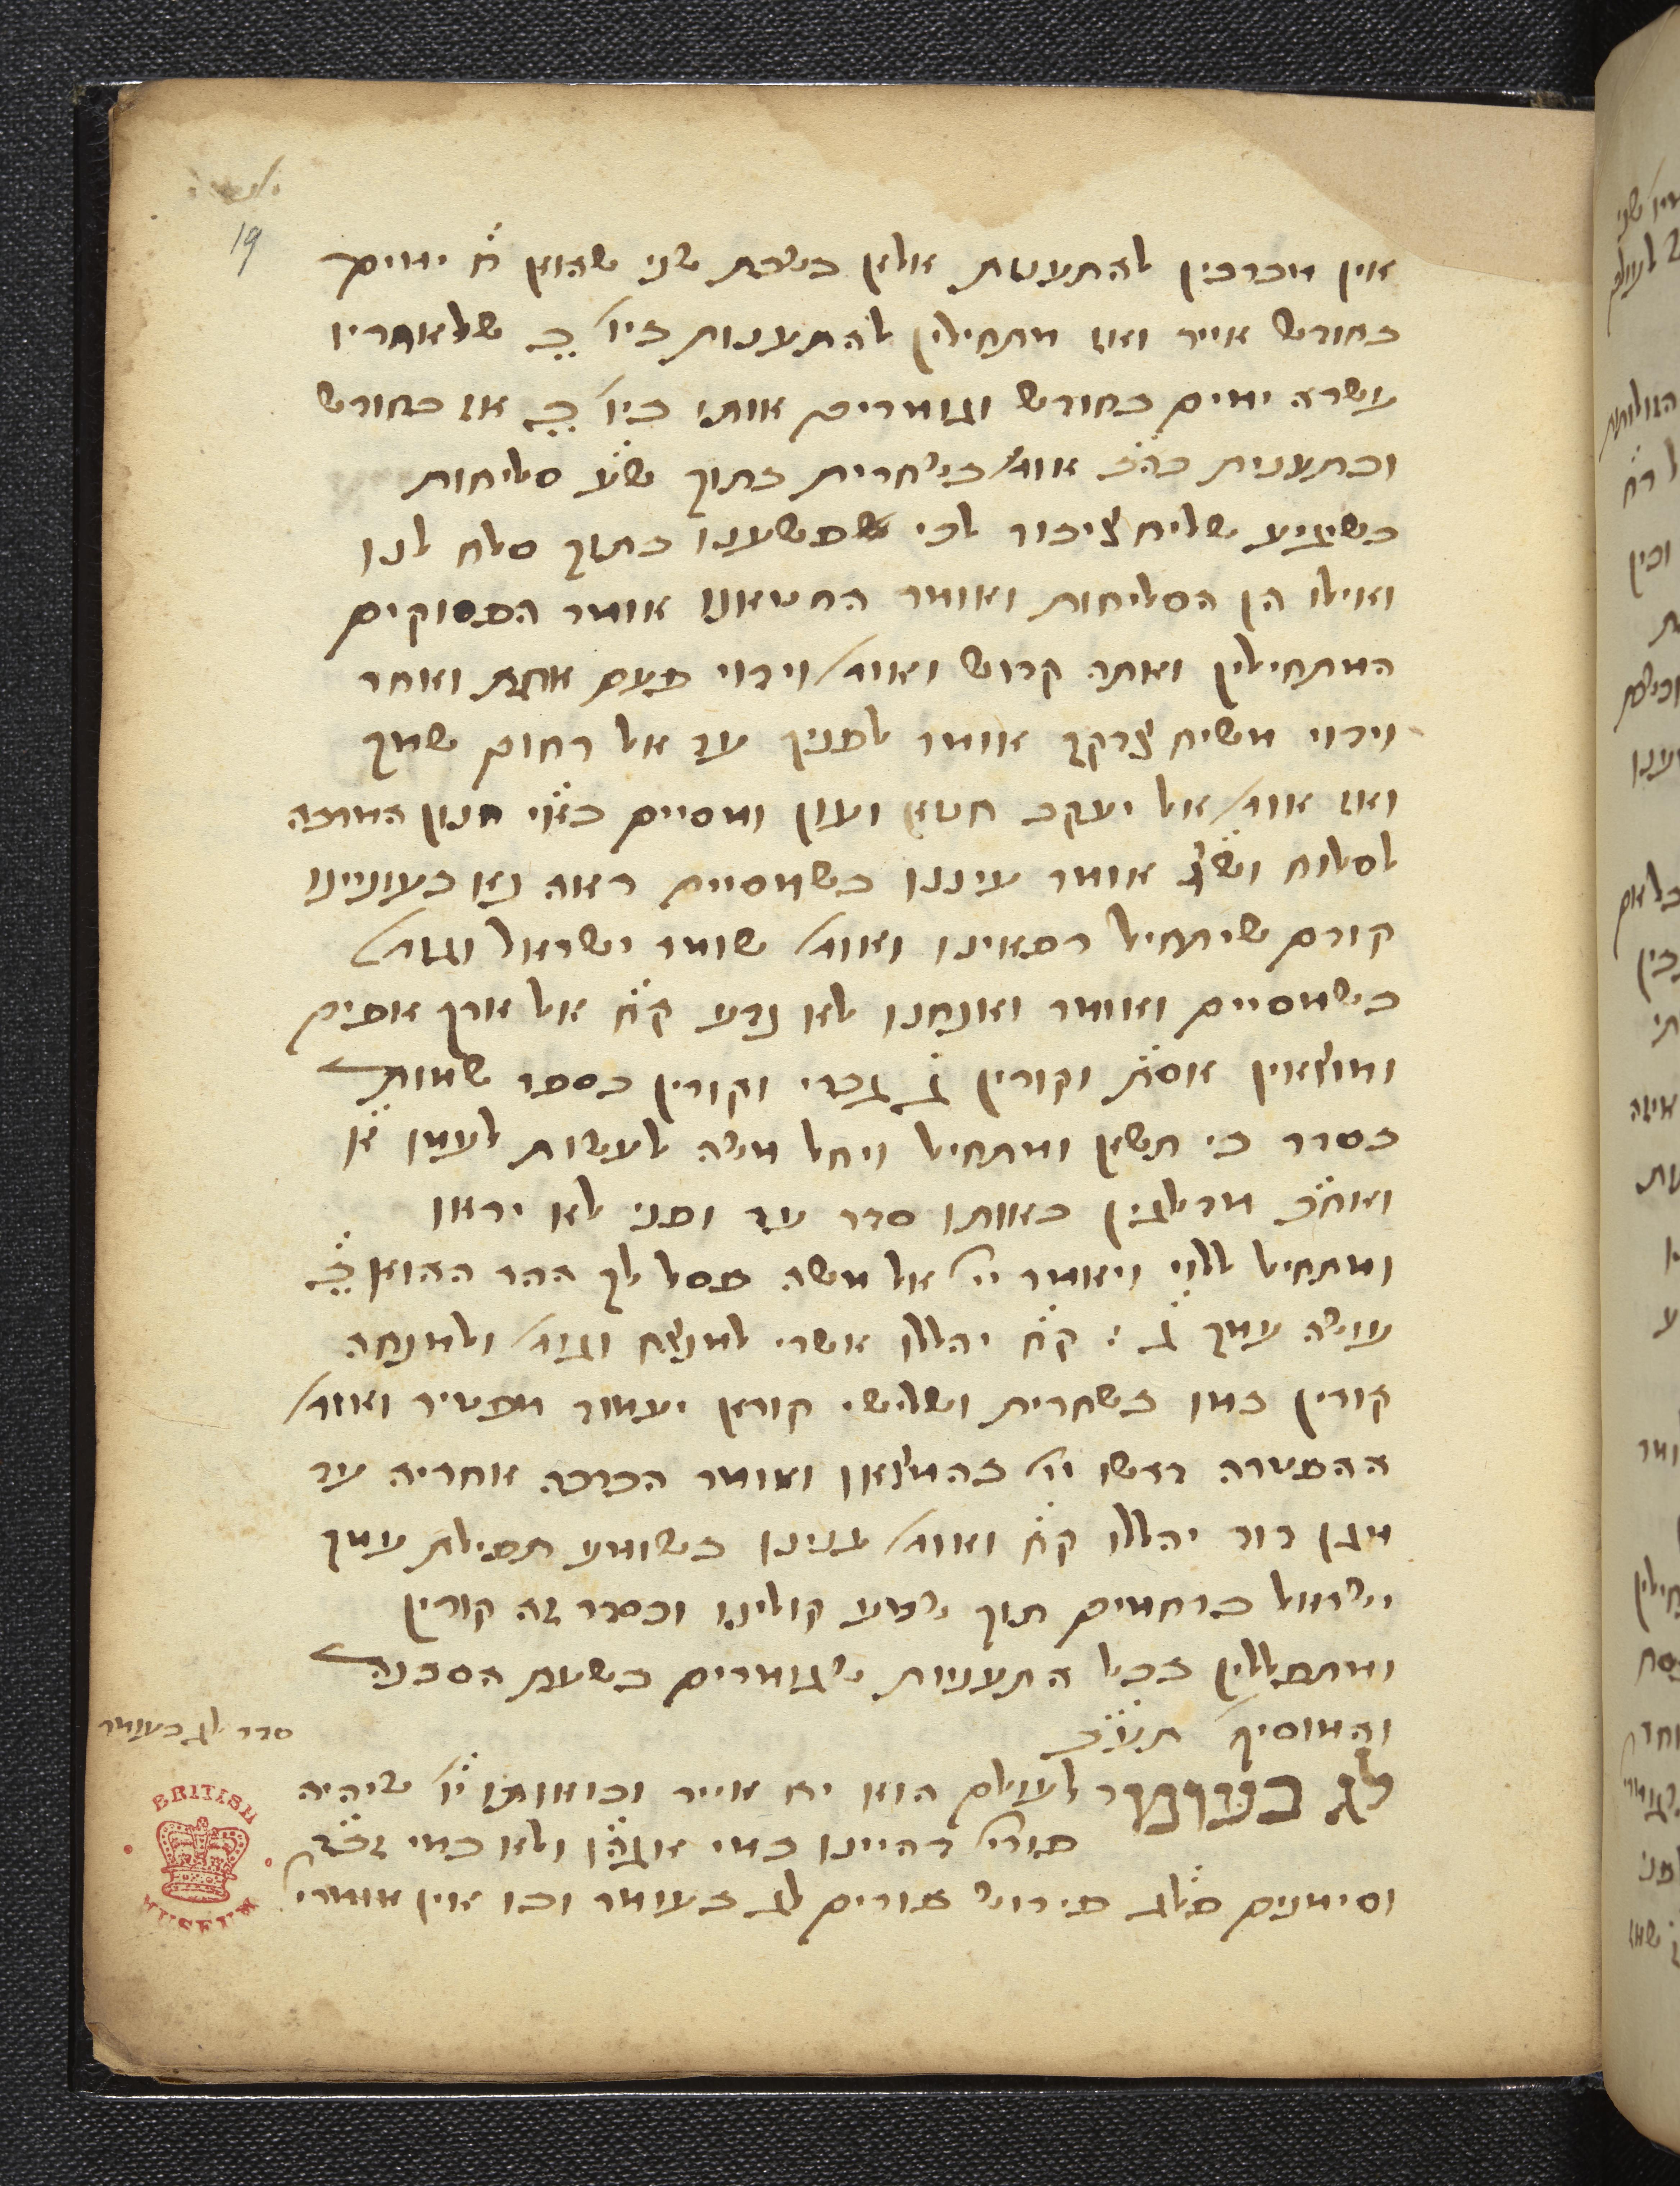 19
אין מברכין להתענות אלא בשבת שני שהוא ח̈ ימים
בחודש אייר ואז מתחילין להתענות ביו׳ ב̤ שלאחריו
עשרה ימים בחודש וגומרים אותו ביו׳ ב̤ אז בחודש
ובתענית בה״ב אומ׳ בשחרית בתוך ש״ע סליחות
כשיגיע שליח ציבור לכי פשענו בתוך סלח לנו
ואילו הן הסליחות ואומר החטאנו אומר הפסוקים
המתחילין ואתה קדוש ואומ׳ וידוי פעם אחת ואחר
וידוי משיח צדקך אומר לפניך עד אל רחום שמך
ואז אומ׳ אל יעקב חטא ועון ומסיים בא״י חנון המרבה
לסלוח וש״צ אומר עיננו כשמסיים ראה נא בעוניינו
קודם שיתחיל רפאינו ואומ׳ שומר ישראל וגומ׳
כשמסיים ואומר ואנחנו לא נדע ק״ח אל ארך אפים
ומוציאין אס״ת וקורין ג̇ גברי וקורין בספר שמות
בסדר כי תשא ומתחיל ויחל משה לעשות לעמו א״ו
ואח״כ מדלגין באותו סדר עד ופני לא יראו
ומתחיל ללוי ויאמר יי׳ אל משה פסל לך ההר ההוא
עושה עמך ג̇ : ק״ח יהללו אשרי למנצח וגומ׳ ולמנחה
קורין כמו בשחרית ושלישי קורא יעמוד מפטיר ואומ׳
ההפטרה דרשו יי׳ בהמצאו ואומר הברכה אחריה עד
מגן דוד יהללו ק״ח ואומ׳ עניינו בשומע תפילת עמך
ישראל ברחמים תוך שמע קולינו וכסדר זה קורין
ומתפללין בכל התעניות שגומרים בשעת הסכנה
והמוסיף תע״ב
סדר לג בעומר
לג בעומר לעולם הוא יח אייר ובאותו יו׳ שיהיה
פורי׳ דהיינו במי אגה״ו ולא במי זב״ד
וסימנים פ״לג פירוש פורים לג בעומר ובו אין אומרי׳
BRITISH
MUSEUM